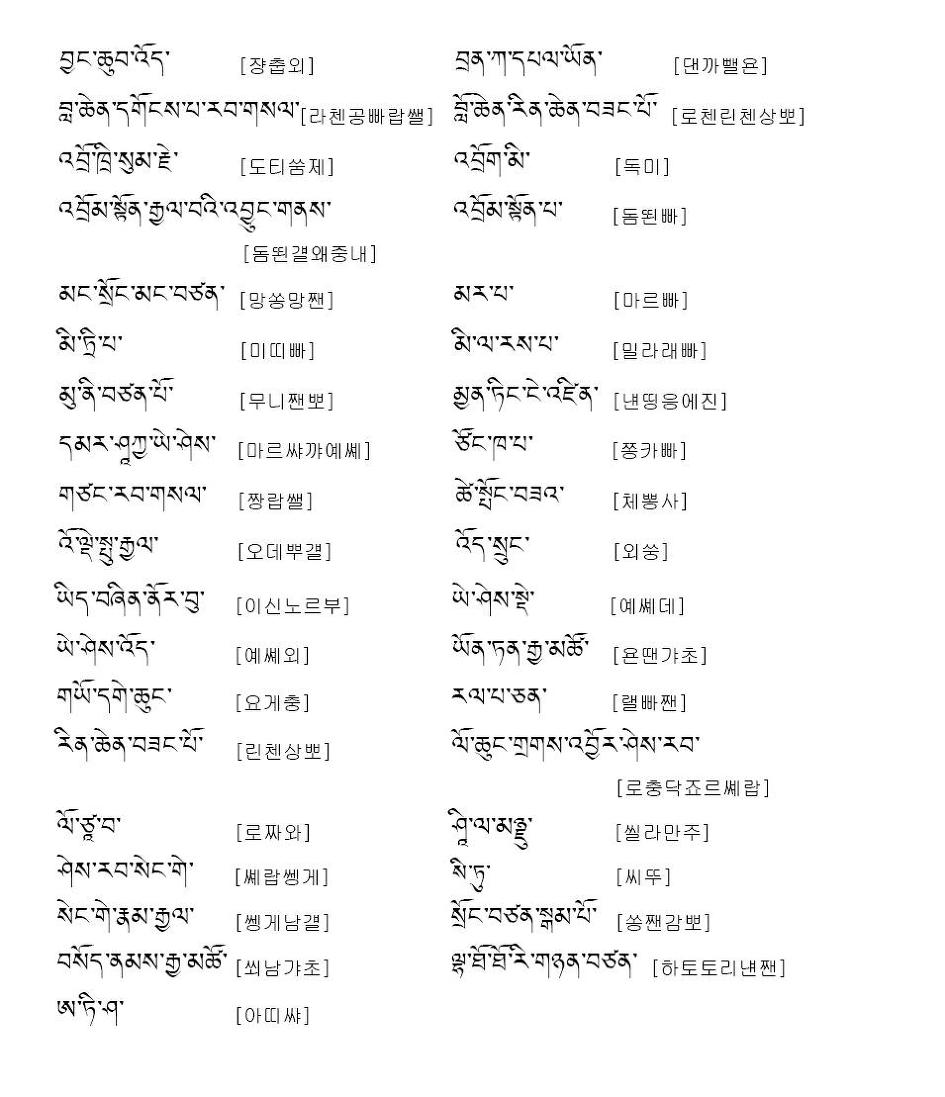 བྱང་ཆུབ་འོད་ [쟝춥외] བྲན་ཀ་དཔལ་ཡོན་ [댄까뺄욘]
བླ་ཆེན་དགོངས་པ་རབ་གསལ་ [라첸공빠랍쌜] བློ་ཆེན་རིན་ཆེན་བཟང་པོ་ [로첸린첸상뽀]
འབྲོ་ཁྲི་སུམ་རྗེ་ [도티쑴제] འབྲོག་མི་ [독미]
འབྲོམ་སྟོན་རྒྱལ་བའི་འབྱུང་གནས་ འབྲོམ་སྟོན་པ་ [돔뙨빠]
[돔뙨걜왜중내]
མང་སྲོང་མང་བཙན་ [망쏭망짼] མར་པ་ [마르빠]
མི་ཏྲི་པ་ [미띠빠] མི་ལ་རས་པ་ [밀라래빠]
མུ་ནི་བཙན་པོ་ [무니짼뽀] མྱན་ཏིང་ངེ་འཛིན་ [냰띵응에진]
དམར་ཤཱཀྱ་ཡེ་ཤེས་ [마르쌰꺄예쎼] ཙོང་ཁ་པ་ [쫑카빠]
གཙང་རབ་གསལ་ [짱랍쌜] ཚེ་སྤོང་བཟའ་ [체뽕사]
འོ་ལྡེ་སྤུ་རྒྱལ་ [오데뿌걜] འོད་སྲུང་ [외쑹]
ཡིད་བཞིན་ནོར་བུ་ [이신노르부] ཡེ་ཤེས་སྡེ་ [예쎼데]
ཡེ་ཤེས་འོད་ [예쎼외] ཡོན་ཏན་རྒྱ་མཚོ་ [욘땐갸초]
གཡོ་དགེ་ཆུང་ [요게충] རལ་པ་ཅན་ [랠빠짼]
རིན་ཆེན་བཟང་པོ་ [린첸상뽀] ལོ་ཆུང་གྲགས་འབྱོར་ཤེས་རབ་
[로충닥죠르쎼랍]
ལོ་ཙཱ་བ་ [로짜와] ཤཱི་ལ་མཉྫུ་ [씰라만주]
ཤེས་རབ་སེང་གེ་ [쎼랍쎙게] སི་ཏུ་ [씨뚜]
སེང་གེ་རྣམ་རྒྱལ་ [쎙게남걜] སྲོང་བཙན་སྒམ་པོ་ [쏭짼감뽀]
བསོད་ནམས་རྒྱ་མཚོ་ [쐬남갸초] ལྷ་ཐོ་ཐོ་རི་གཉན་བཙན་ [하토토리냰짼]
ཨ་ཏི་ཤ་ [아띠쌰]